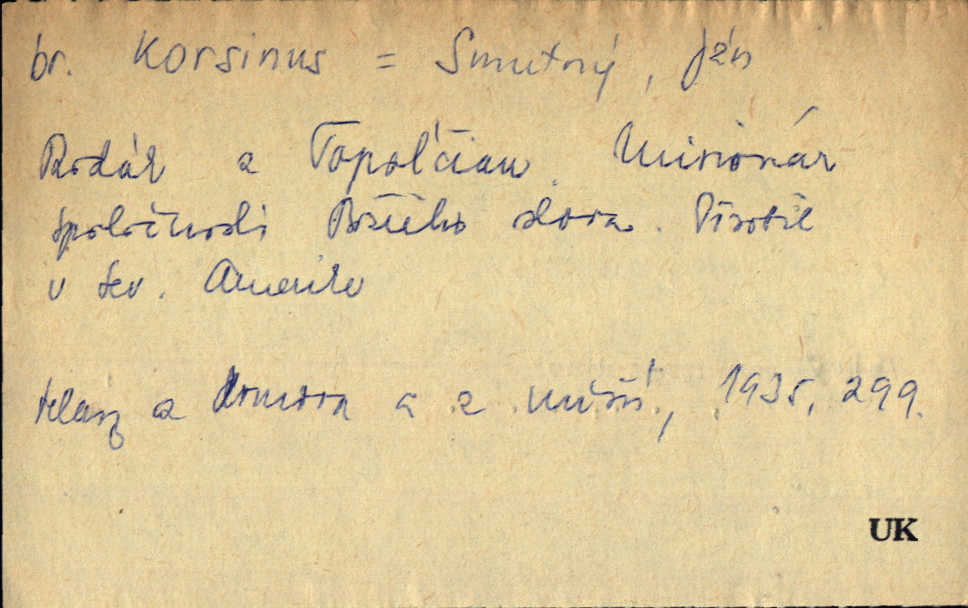 br. Korsinus = Smutný, Ján
Rodák z Topoľčian. Misionár
Spoločnosti Božieho slova. Pôsobil
v Sev. Amerike
Hlasy z domova a z misií, 1935, 299.
UK